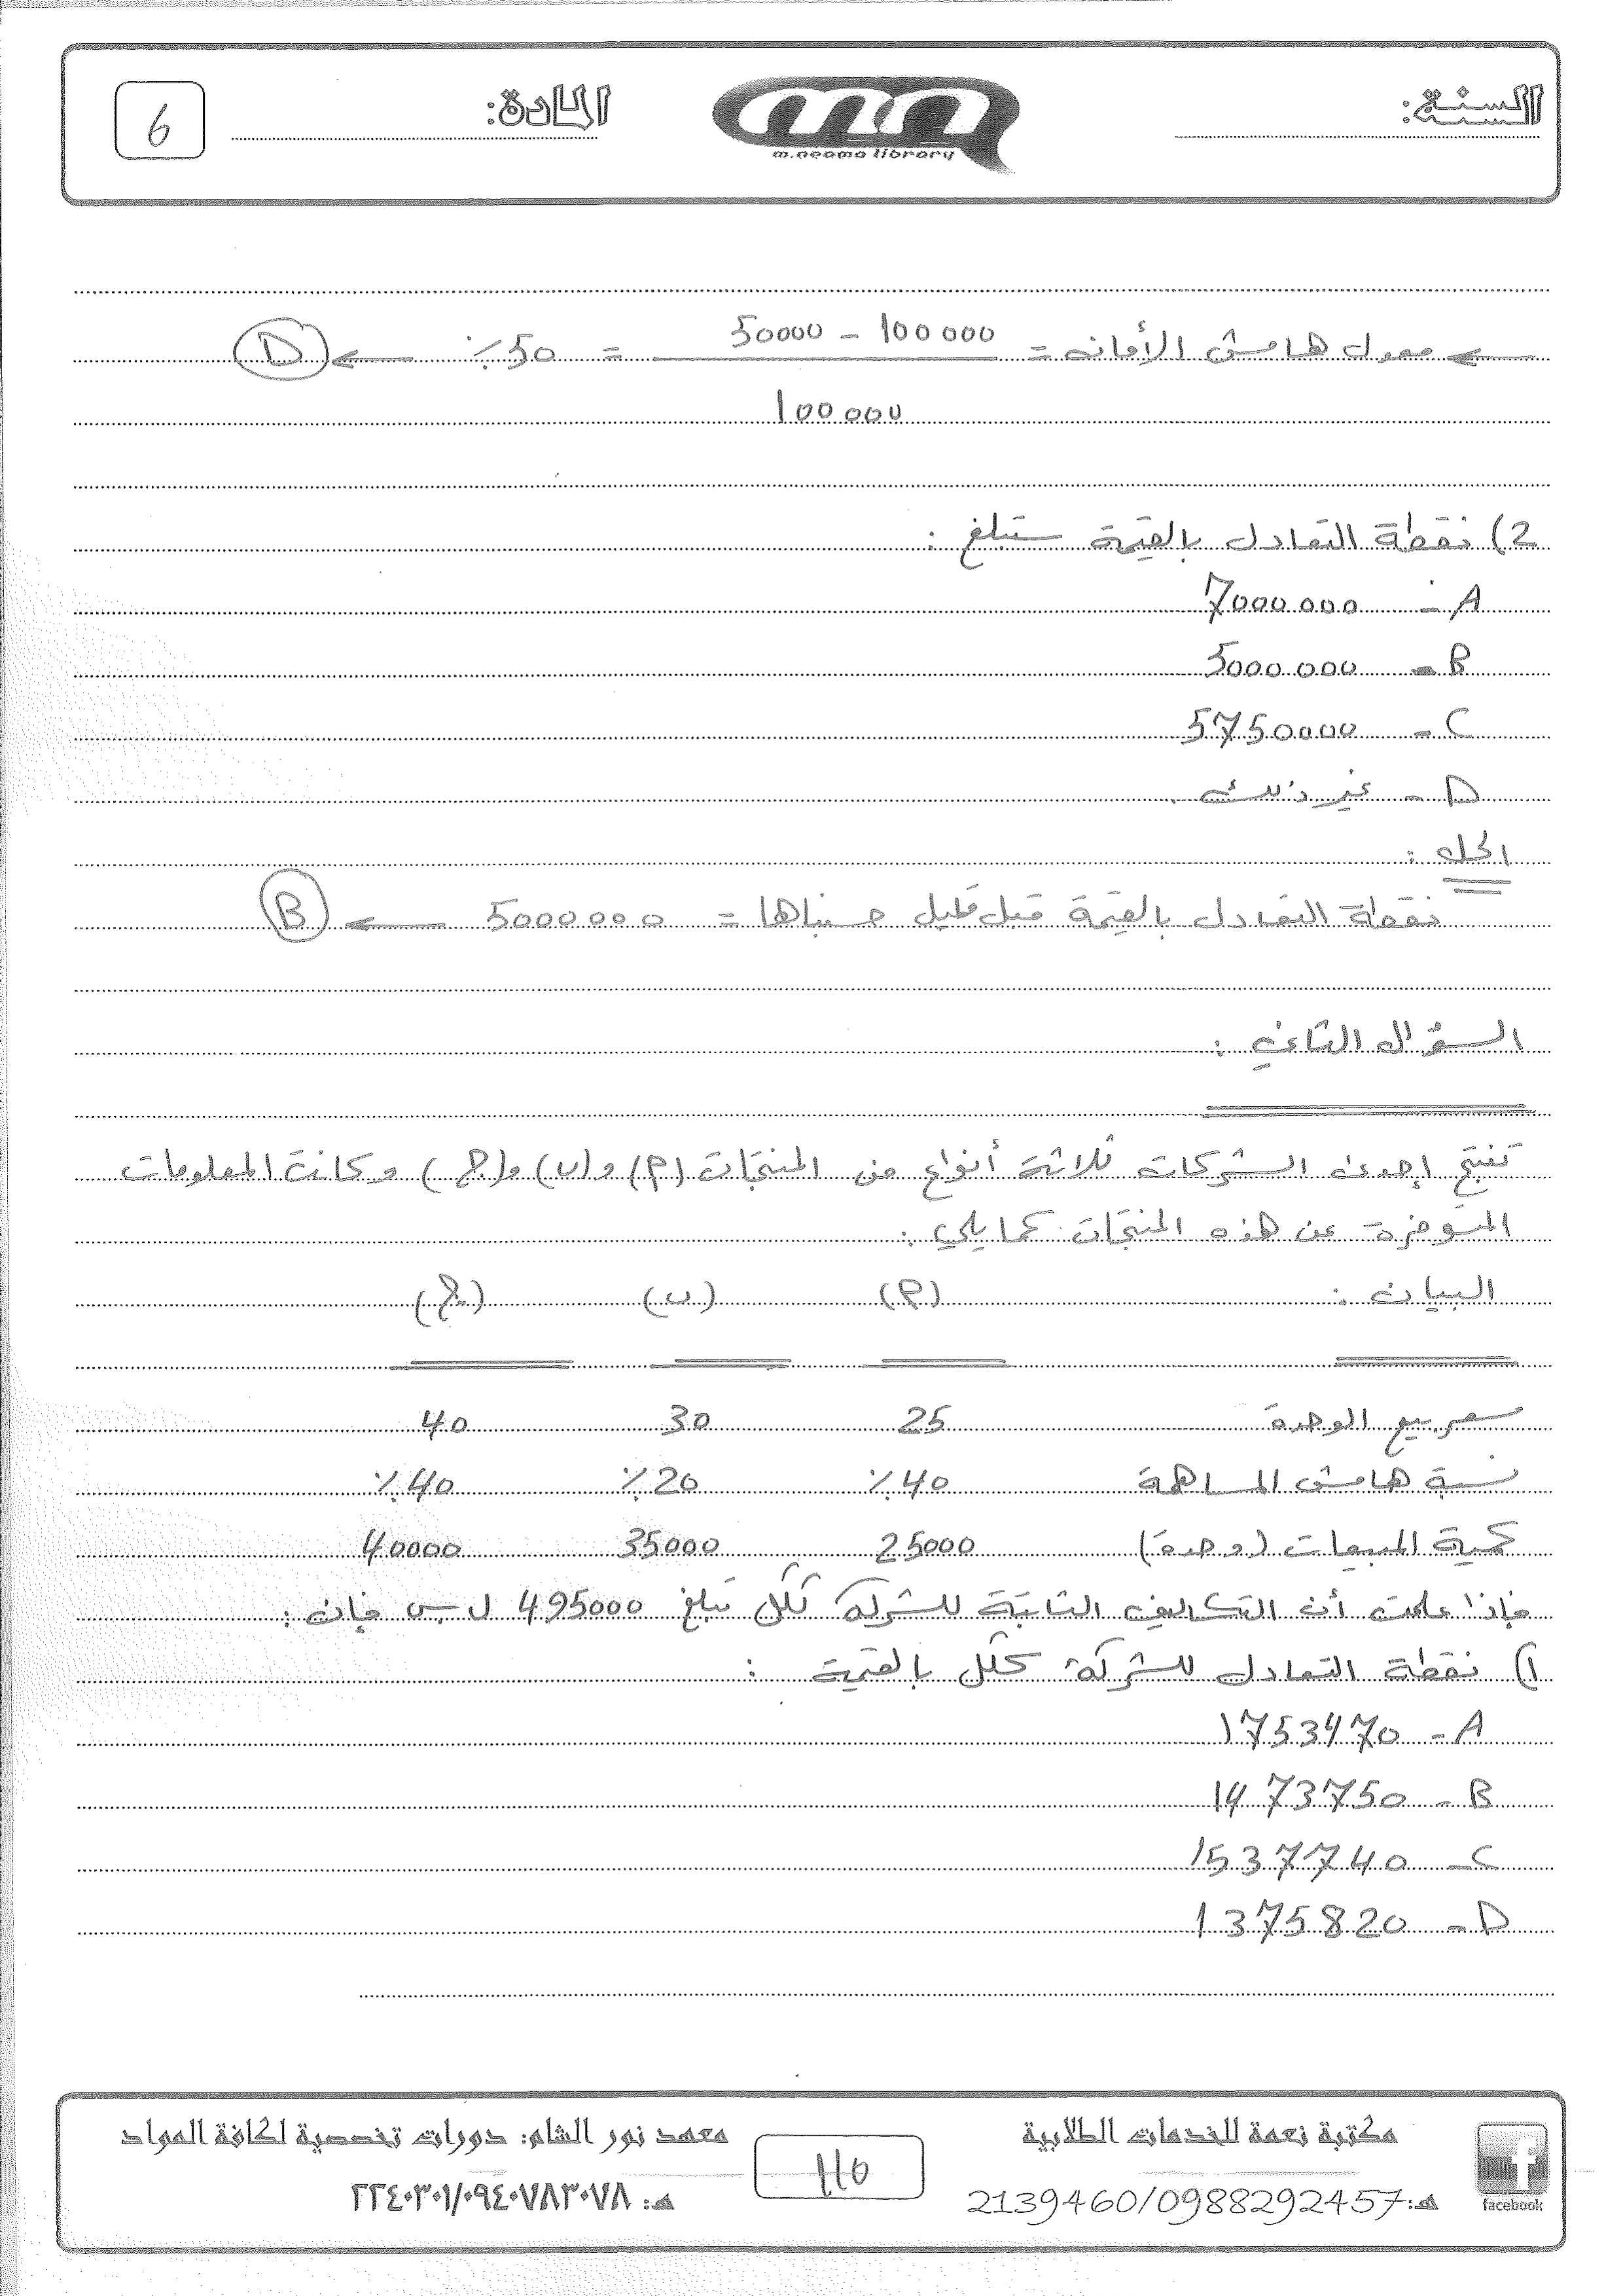 السنة:
m.neama library
المادة:
6
← معدل هامش الأمان = 100000 - 50000 / 100000 = 50٪ ← D
2) نقطة التعادل بالقيمة ستبلغ :
A - 7000000
B - 5000000
C - 5750000
D - غير ذلك .
الحل :
نقطة التعادل بالقيمة قبل قليل حسبناها = 5000000 ← B
السؤال الثاني :
تنتج إحدى الشركات ثلاثة أنواع من المنتجات (م) و(ب) و(ج) وكانت المعلومات
المتوفرة عن هذه المنتجات كمايلي :
البيان : (م) (ب) (ج)
سعر بيع الوحدة 25 30 40
نسبة هامش المساهمة 40٪ 20٪ 40٪
كمية المبيعات (وحدة) 25000 35000 40000
فإذا علمت أن التكاليف الثابتة للشركة ككل تبلغ 495000 ل.س فإن :
1) نقطة التعادل للشركة ككل بالقيمة :
A - 1753470
B - 1473750
C - 1537740
D - 1375820
مكتبة نعمة للخدمات الطلابية
هـ: 2139460/0988292457
facebook
معهد نور الشام: دورات تخصصية لكافة المواد
هـ: ٢٢٤٠٣٠١/٠٩٤٠٧٨٣٠٧٨